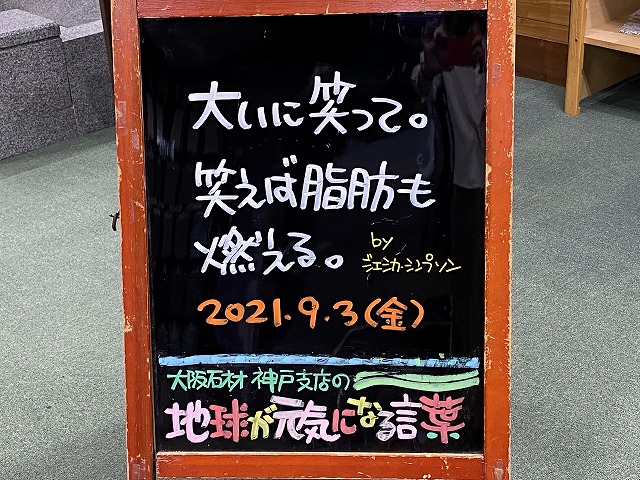 大いに笑って。
笑えば脂肪も
燃える。
by
ジェシカ・シンプソン
2021.9.3(金)
大阪石材 神戸支店の
地球が元気になる言葉